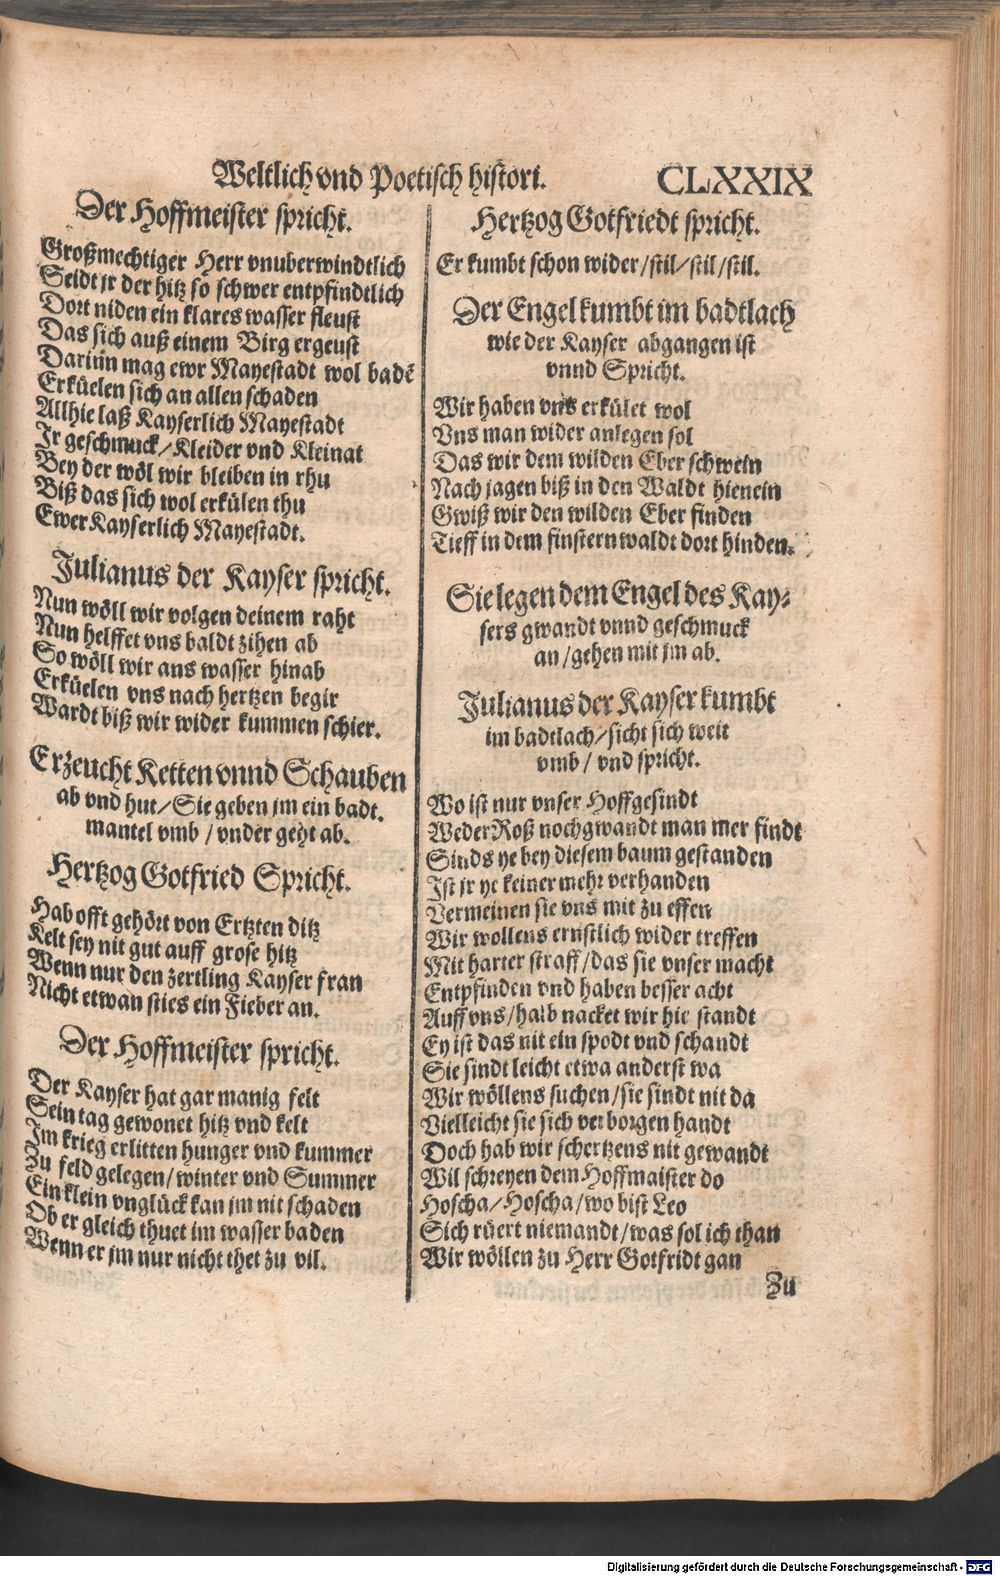 Weltlich vnd Poetisch histori. CLXXIX
Der Hoffmeister spricht.
Großmechtiger Herr vnuberwindtlich
Seidt jr der hitz so schwer entpfindtlich
Dort niden ein klares wasser fleust
Das sich auß einem Birg ergeust
Dariñn mag ewr Mayestadt wol badē
Erküelen sich an allen schaden
Allhie laß Kayserlich Mayestadt
Jr geschmuck/Kleider vnd Kleinat
Bey der wöl wir bleiben in rhu
Biß das sich wol erkülen thu
Ewer Kayserlich Mayestadt.
Julianus der Kayser spricht.
Nun wöll wir volgen deinem raht
Nun helffet vns baldt zihen ab
So wöll wir ans wasser hinab
Erküelen vns nach hertzen begir
Wardt biß wir wider kummen schier.
Er zeucht Ketten vnnd Schauben
ab vnd hut/Sie geben jm ein badt.
mantel vmb / vnder geht ab.
Hertzog Gotfried Spricht.
Hab offt gehört von Ertzten ditz
Kelt sey nit gut auff grose hitz
Wenn nur den zertling Kayser fran
Nicht etwan sties ein Fieber an.
Der Hoffmeister spricht.
Der Kayser hat gar manig felt
Sein tag gewonet hitz vnd kelt
Im krieg erlitten hunger vnd kummer
Zu feld gelegen/winter vnd Summer
Ein klein vnglück kan jm nit schaden
Ob er gleich thuet im wasser baden
Wenn er jm nur nicht thet zu vil.
Hertzog Gotfriedt spricht.
Er kumbt schon wider/stil/stil/stil.
Der Engel kumbt im badtlach
wie der Kayser abgangen ist
vnnd Spricht.
Wir haben vns erkület wol
Vns man wider anlegen sol
Das wir dem wilden Eber schwein
Nach jagen biß in den Waldt hienein
Gwiß wir den wilden Eber finden
Tieff in dem finstern waldt dort hinden.
Sie legen dem Engel des Kay-
sers gwandt vnnd geschmuck
an/gehen mit jm ab.
Julianus der Kayser kumbt
im badtlach/sicht sich weit
vmb / vnd spricht.
Wo ist nur vnser Hoffgesindt
Weder Roß noch gwandt man mer findt
Sinds ye bey diesem baum gestanden
Ist jr ye keiner mehr verhanden
Vermeinen sie vns mit zu effen
Wir wollens ernstlich wider treffen
Mit harter straff/das sie vnser macht
Entpfinden vnd haben besser acht
Auff vns/halb nacket wir hie standt
Ey ist das nit ein spodt vnd schandt
Sie sindt leicht etwa anderst wa
Wir wöllens suchen/sie sindt nit da
Vielleicht sie sich verborgen handt
Doch hab wir schertzens nit gewandt
Wil schreyen dem Hoffmaister do
Hoscha/Hoscha/wo bist Leo
Sich rüert niemandt/was sol ich than
Wir wöllen zu Herr Gotfridt gan
Zu
Digitalisierung gefördert durch die Deutsche Forschungsgemeinschaft - DFG